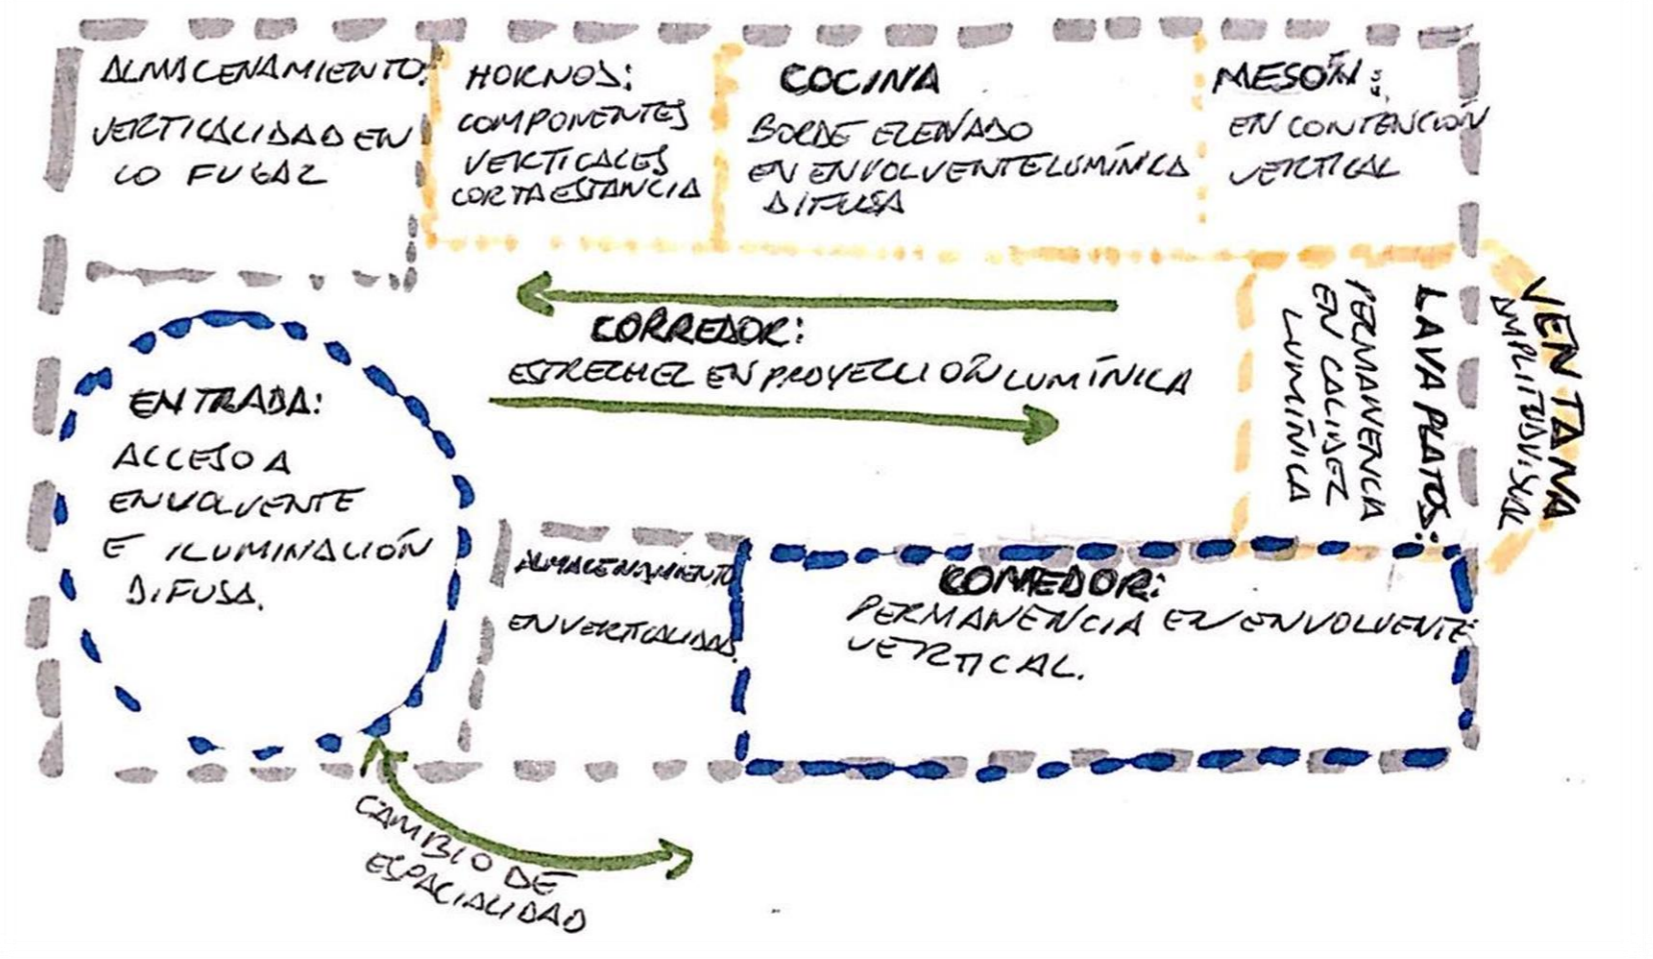 ALMACENAMIENTO:
VERTICALIDAD EN
LO FUGAZ
HORNOS:
COMPONENTES
VERTICALES
CORTA ESTANCIA
COCINA
BORDE ELEVADO
EN ENVOLVENTE LUMÍNICA
DIFUSA
MESÓN:
EN CONTENCIÓN
VERTICAL
CORREDOR:
ESTRECHEZ EN PROYECCIÓN LUMÍNICA
LAVA PLATOS:
PERMANENCIA
EN CALIDEZ
LUMÍNICA
VENTANA
AMPLITUD VISUAL
ENTRADA:
ACCESO A
ENVOLVENTE
E ILUMINACIÓN
DIFUSA.
ALMACENAMIENTO
EN VERTICALIDAD.
COMEDOR:
PERMANENCIA EN ENVOLVENTE
VERTICAL.
CAMBIO DE
ESPACIALIDAD